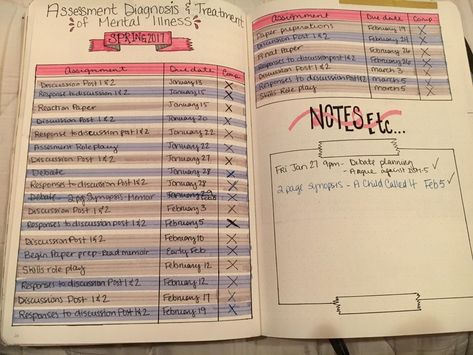 Assessment Diagnosis & Treatment
of Mental Illness
SPRING 2017
Assignment Due date Comp.
Discussion Post 1 & 2 January 13 X
Response to discussion 1 & 2 January 15 X
Reaction Paper January 15 X
Discussion Post 1 & 2 January 20 X
Response to discussion 1 & 2 January 22 X
Assessment Role play January 22 X
Discussion Post 1 & 2 January 27 X
Debate January 28 X
Responses to discussion Post 1 & 2 January 28 X
Debate - 2 pg Synopsis - Memoir January 29 X
Discussion Post 1 & 2 February 3 X
Responses to discussion Post 1 & 2 February 5 X
Discussion Post 1 & 2 February 10 X
Begin Paper prep - Read memoir Early Feb X
Skills role play February 12 X
Responses to discussion Post 1 & 2 February 12 X
Discussions Post 1 & 2 February 17 X
Responses to discussion Post 1 & 2 February 19 X
Assignment Due date Comp
Paper preparations February 19 X
Discussion Post 1 & 2 February 24 X
Final Paper February 26 X
Responses to discussion Post 1 & 2 February 26 X
Discussion Post 1 & 2 March 3 X
Responses to discussion Post 1 & 2 March 5 X
Skills Role play March 5 X
NOTES, Etc...
Fri Jan 27 9pm - Debate planning
- Argue against DSM-5 ✓
2 page synopsis - A Child Called It Feb 5 ✓